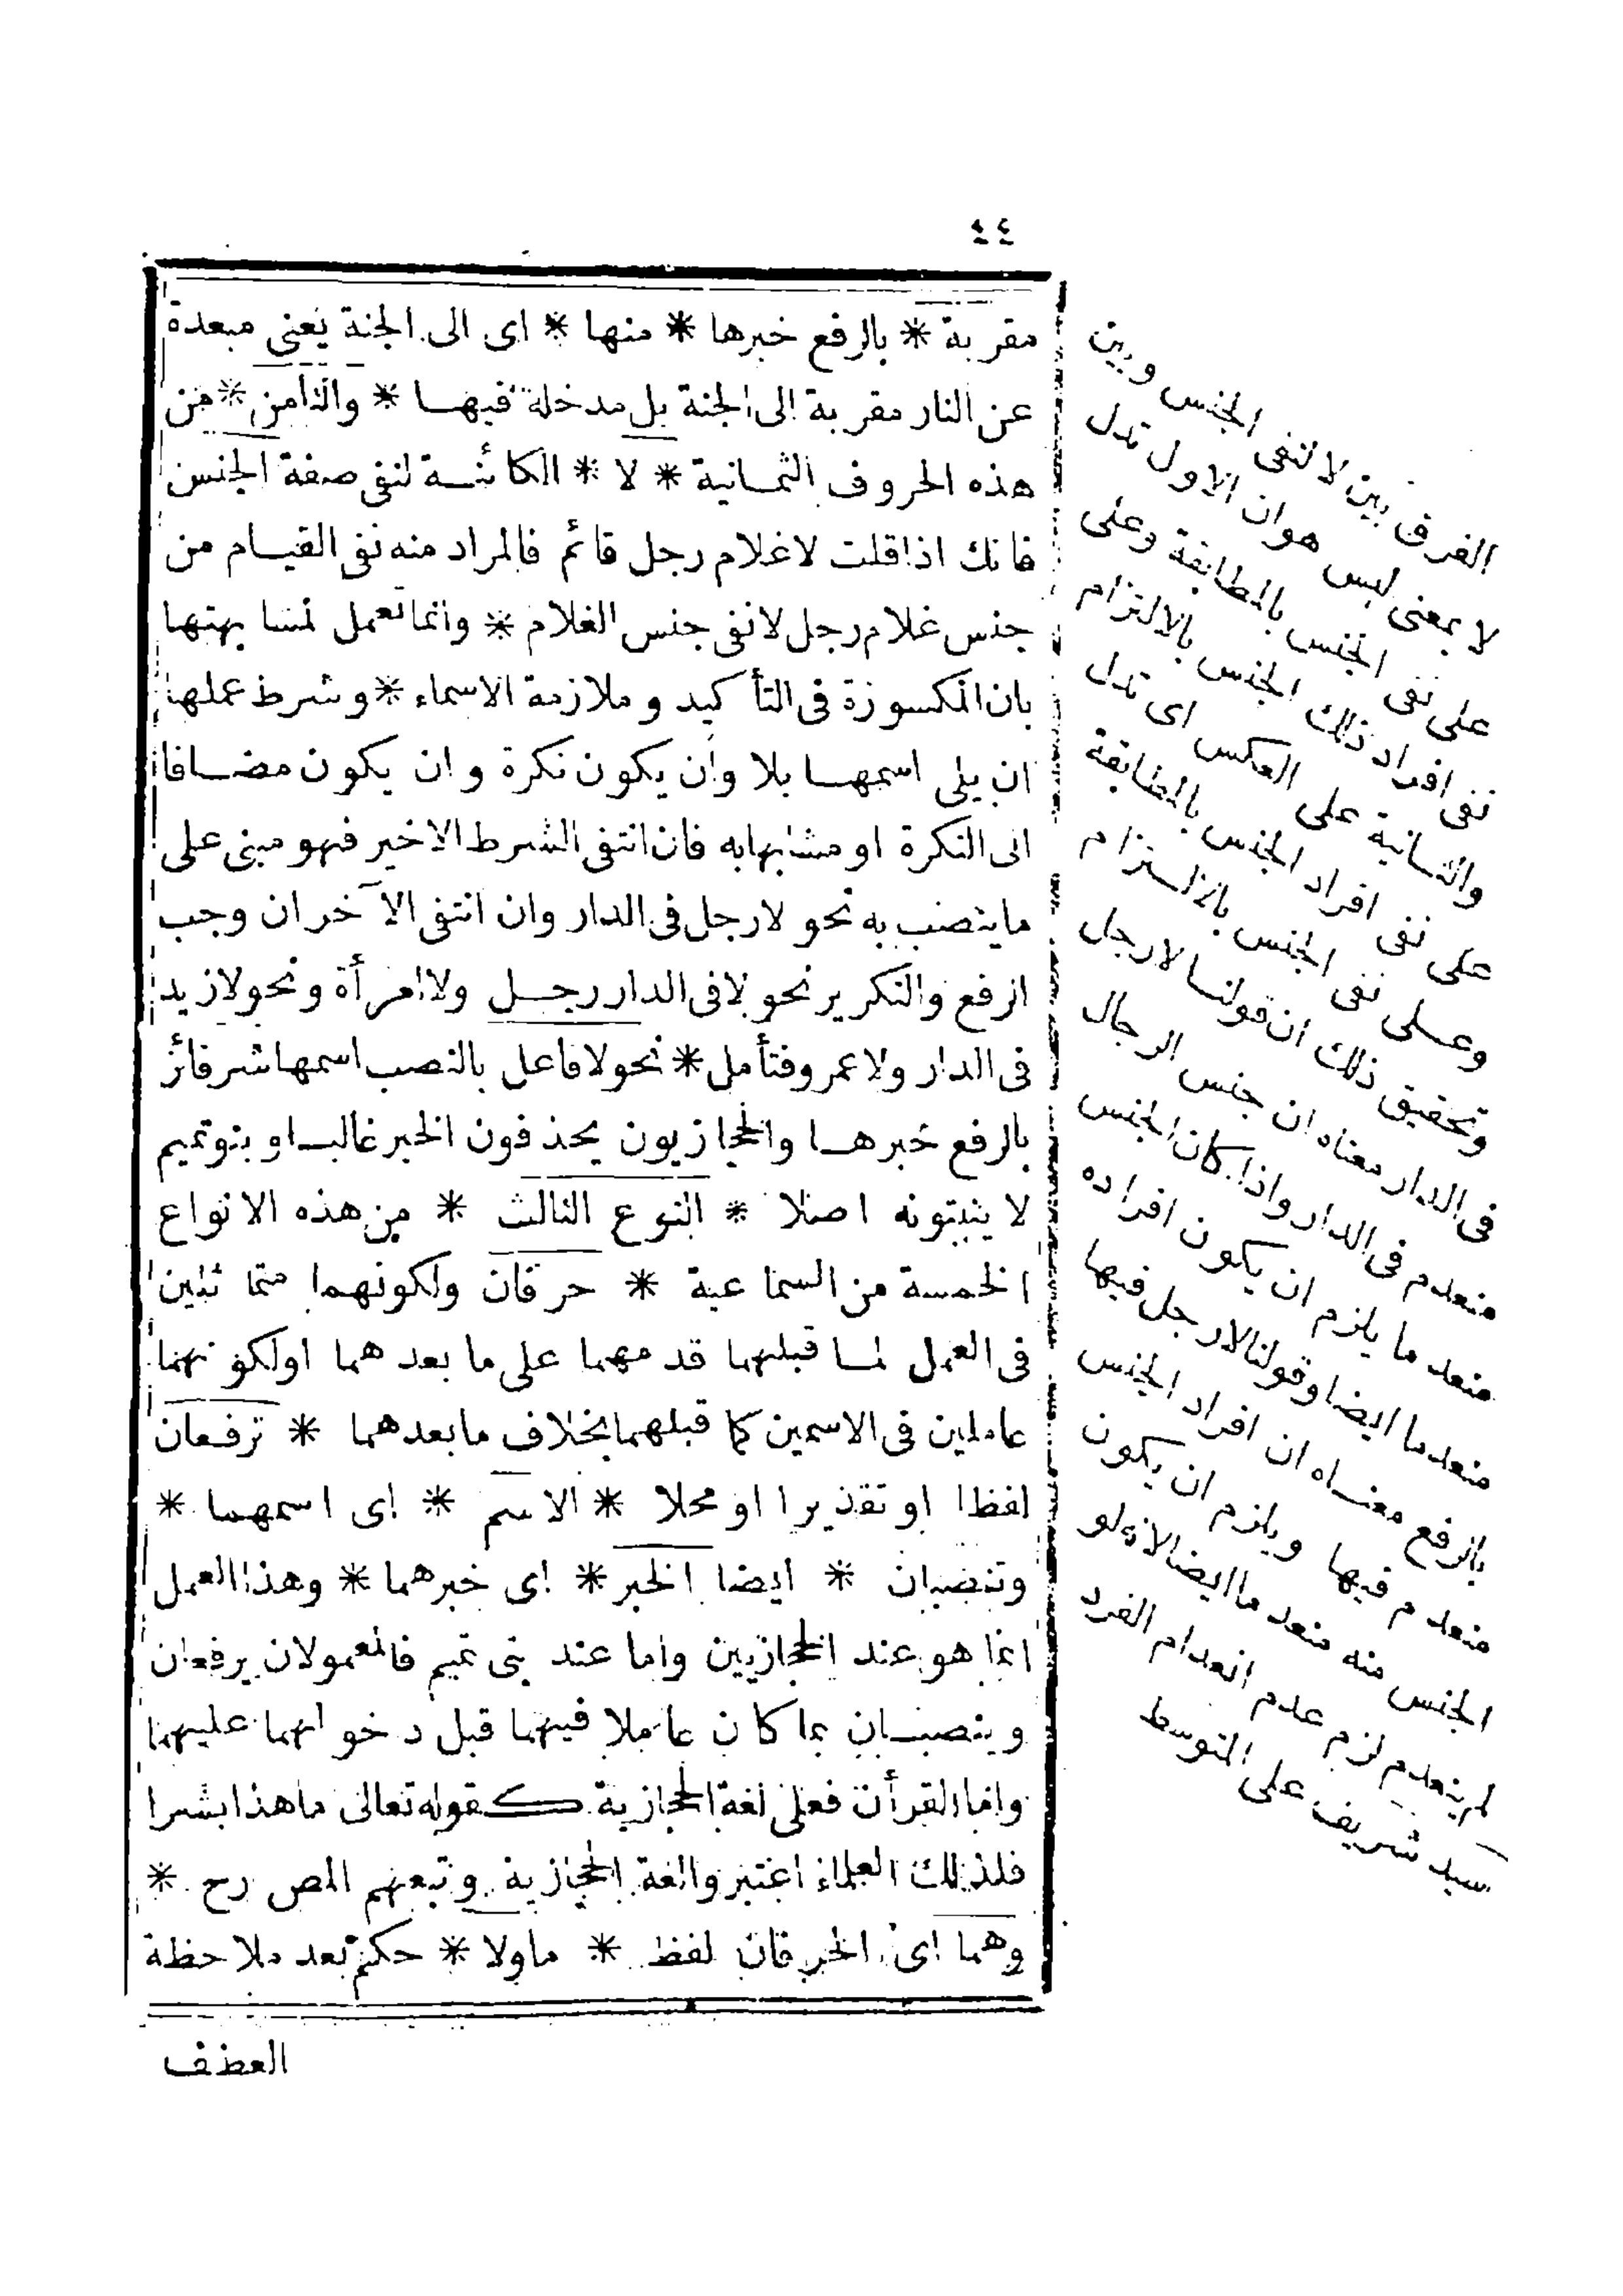 ٤٤
مقربة * بالرفع خبرها * منها * اى الى الجنة يعنى مبعدة
عن النار مقربة الى الجنة بل مدخلة فيهــا * والثامن * من
هذه الحروف الثمــانية * لا * الكائنــة لنفى صفة الجنس
فانك اذا قلت لا غلام رجل قائم فالمراد منه نفى القيــام من
جنس غلام رجل لا نفى جنس الغلام * وانما تعمل لمشابهتها
بان المكسورة فى التأكيد وملازمة الاسماء * وشرط عملها
ان يلى اسمهــا بلا وان يكون نكرة وان يكون مضــافا
الى النكرة او مشابها به فان انتفى الشرط الاخير فهو مبنى على
ما ينصب به نحو لا رجل فى الدار وان انتفى الآخران وجب
الرفع والتكرير نحو لا فى الدار رجــل ولا امرأة ونحو لا زيد
فى الدار ولا عمرو فتأمل * نحو لا فاعل بالنصب اسمها شر فائز
بالرفع خبرهــا والحجازيون يحذفون الخبر غالبــا وبنو تميم
لا يثبتونه اصلا * النوع الثالث * من هذه الانواع
الخمسة من السماعية * حرفان ولكونهما متماثلين
فى العمل لمــا قبلهما قدمهما على ما بعدهما او لكونهما
عاملين فى الاسمين كما قبلهما بخلاف ما بعدهما * ترفعان
لفظا او تقديرا او محلا * الاسم * اى اسمهما *
وتنصبان * ايضا الخبر * اى خبرهما * وهذا العمل
انما هو عند الحجازيين واما عند بنى تميم فالمعمولان يرفعان
وينصبــان بما كان عاملا فيهما قبل دخولهما عليهما
واما القرأن فعلى لغة الحجازية كــقوله تعالى ما هذا بشرا
فلذلك العلماء اعتبروا لغة الحجازية وتبعهم المص رح *
وهما اى الحرفان لفظ * ما ولا * حكم بعد ملاحظة
العطف
الفرق بين لا لنفى الجنس وبين
لا بمعنى ليس هو ان الاول تدل
على نفى الجنس بالمطابقة وعلى
نفى افراد ذلك الجنس بالالتزام
والثــانية على العكس اى تدل
على نفى افراد الجنس بالمطابقة
وعــلى نفى الجنس بالالــتزام
وتحقيق ذلك ان قولنــا لا رجل
فى الدار معناه ان جنس الرجال
منعدم فى الدار واذا كان الجنس
منعدما يلزم ان يكون افراده
منعدما ايضا وقولنا لا رجل فيها
بالرفع معنــاه ان افراد الجنس
منعدم فيها ويلزم ان يكون
الجنس منه منعدما ايضا لانه لو
لم ينعدم لزم عدم انعدام الفرد
سيد شريف على المتوسط